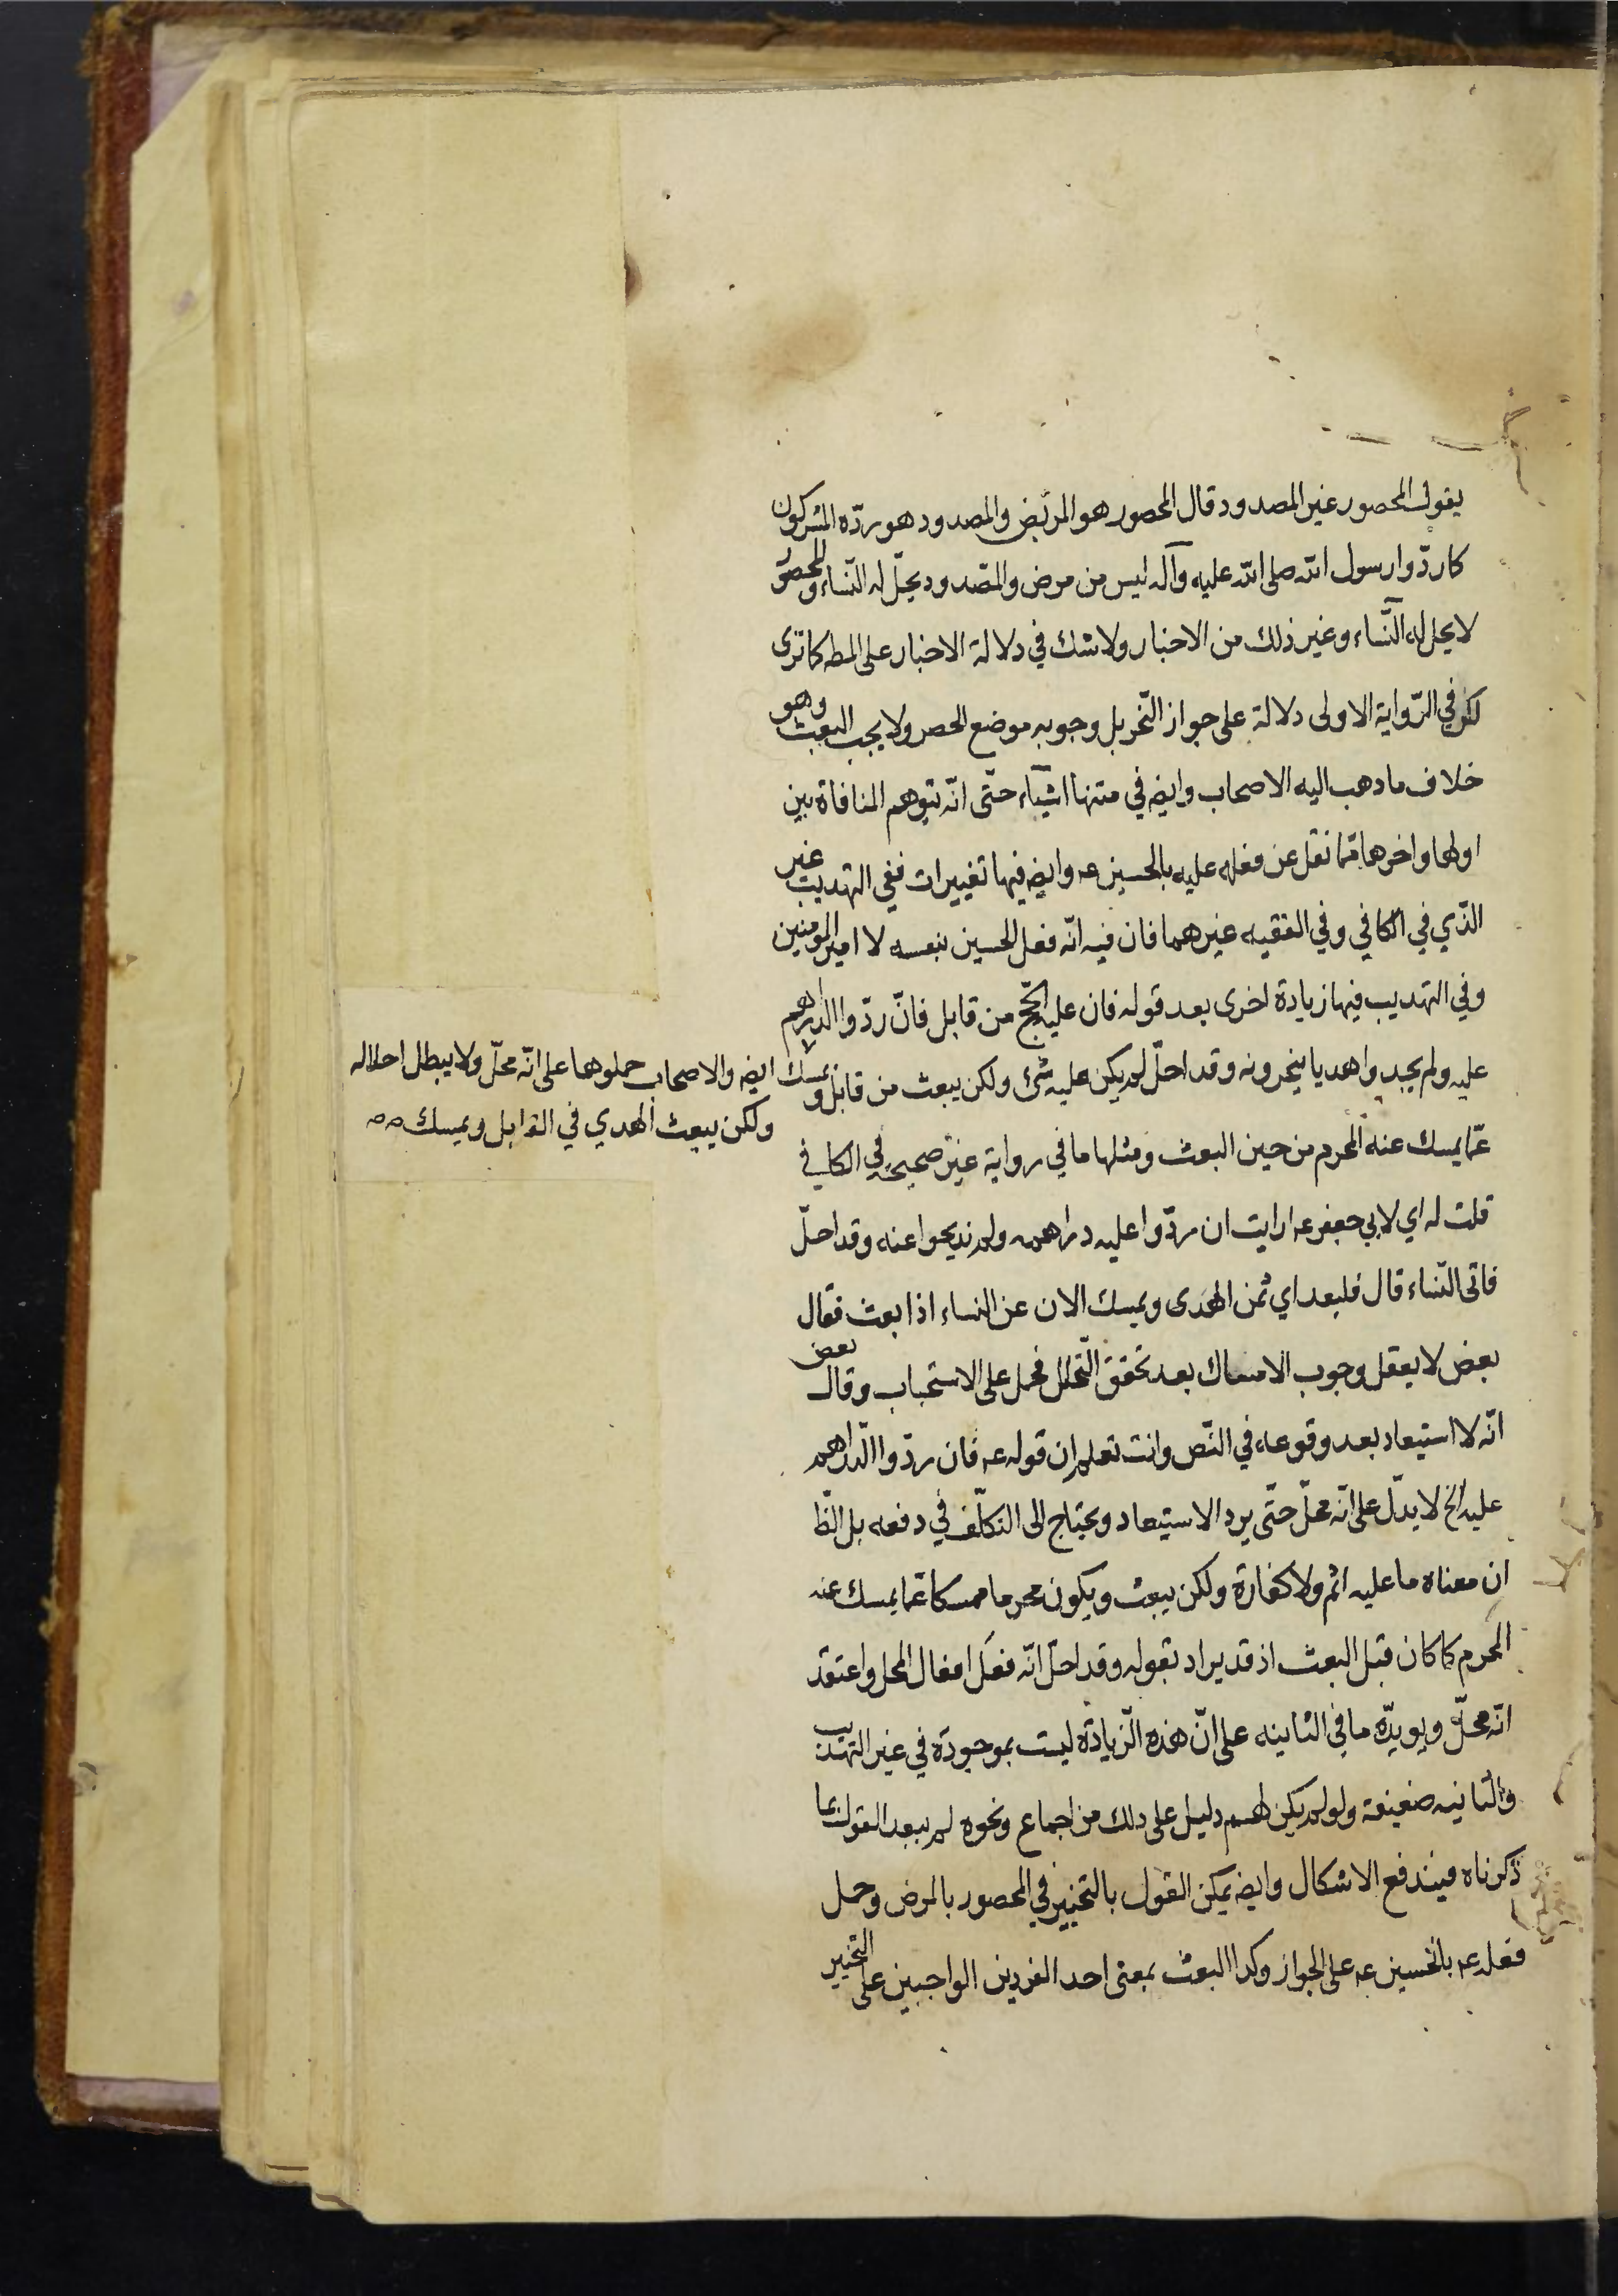 يقول المحصور غير المصدود قال المحصور هو المريض والمصدود هو ردّه المشركون
كما ردّوا رسول الله صلى الله عليه وآله ليس من مرض والمصدود يحلّ له النّساء والمحصور
لا يحل له النّساء وغير ذلك من الاخبار ولا شك في دلالة الاخبار على المط كما ترى
لكن في الرّواية الاولى دلالة على جواز النّحر بل وجوبه موضع الحصر ولا يجب البعث وهو
خلاف ما ذهب اليه الاصحاب وايضه في متنها اشياء حتّى انّه يتوهم المنافاة بين
اولها واخرها ممّا نقل عن فعله عليه بالحسين عه وايضه فيها تغييرات ففي التهذيب غير
الّذي في الكافي وفي الفقيه غيرهما فان فيه انّه فعل الحسين بنفسه لا امير المومنين
وفي التهذيب فيها زيادة اخرى بعد قوله فان عليه الحجّ من قابل فانّ ردّوا الدراهم
عليه ولم يجدوا هديا ينحرونه وقد احلّ لم يكن عليه شئ ولكن يبعث من قابل ويمسك
ايضه والاصحاب حملوها على انّه محلّ ولا يبطل احلاله
ولكن يبعث الهدي في القابل ويمسك صه
عمّا يمسك عنه المحرم من حين البعث ومثلها ما في رواية غير صحيحة في الكافي
قلت له اي لابي جعفر عه ارايت ان ردّوا عليه دراهمه ولم يذبحوا عنه وقد احلّ
فاتى النّساء قال فليعد اي ثمن الهدى ويمسك الان عن النساء اذا بعث فقال
بعض لا يعقل وجوب الامساك بعد تحقق التّحلل فحمل على الاستحباب وقال بعض
انّه لا استبعاد بعد وقوعه في النّص وانت تعلم ان قوله عه فان ردّوا الدّراهم
عليه الخ لا يدلّ على انّه محلّ حتّى يرد الاستبعاد ويحتاج الى التكلّف في دفعه بل الظّا
ان معناه ما عليه اثم ولا كفارة ولكن يبعث ويكون محرما ممسكا عمّا يمسك عنه
المحرم كما كان قبل البعث اذ قد يراد بقوله وقد احلّ انّه فعل افعال المحل واعتقد
انّه محلّ ويويدّه ما في الثانيه على انّ هذه الزّيادة ليست بموجودة في غير التهذيب
والثانيه ضعيفة ولو لم يكن لهم دليل على ذلك من اجماع ونحوه لم يبعد القول بما
ذكرناه فيندفع الاشكال وايضه يمكن القول بالتخيير في المحصور بالمرض وحمل
فعله عه بالحسين عه على الجواز وكذا البعث بمعنى احد الفردين الواجبين على التخيير